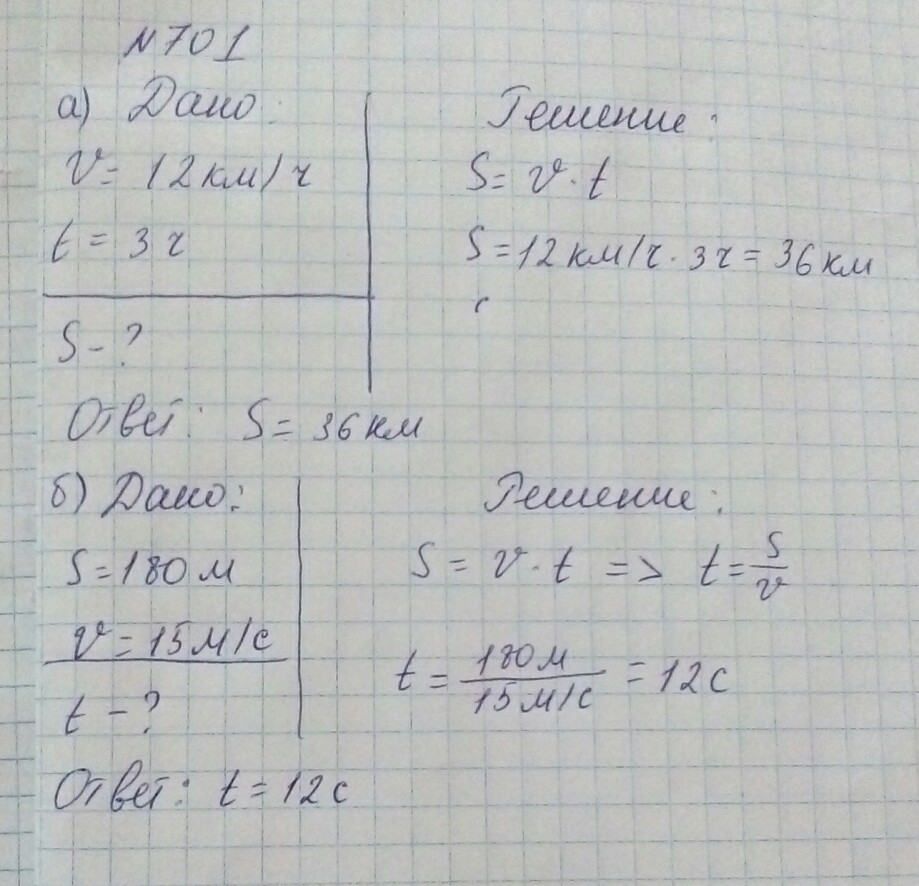 №701
а) Дано:
v = 12 км/ч
t = 3 ч
S - ?
Решение:
S = v · t
S = 12 км/ч · 3 ч = 36 км
Ответ: S = 36 км
б) Дано:
S = 180 м
v = 15 м/с
t - ?
Решение:
S = v · t => t = S/v
t = 180 м / 15 м/с = 12 с
Ответ: t = 12 с